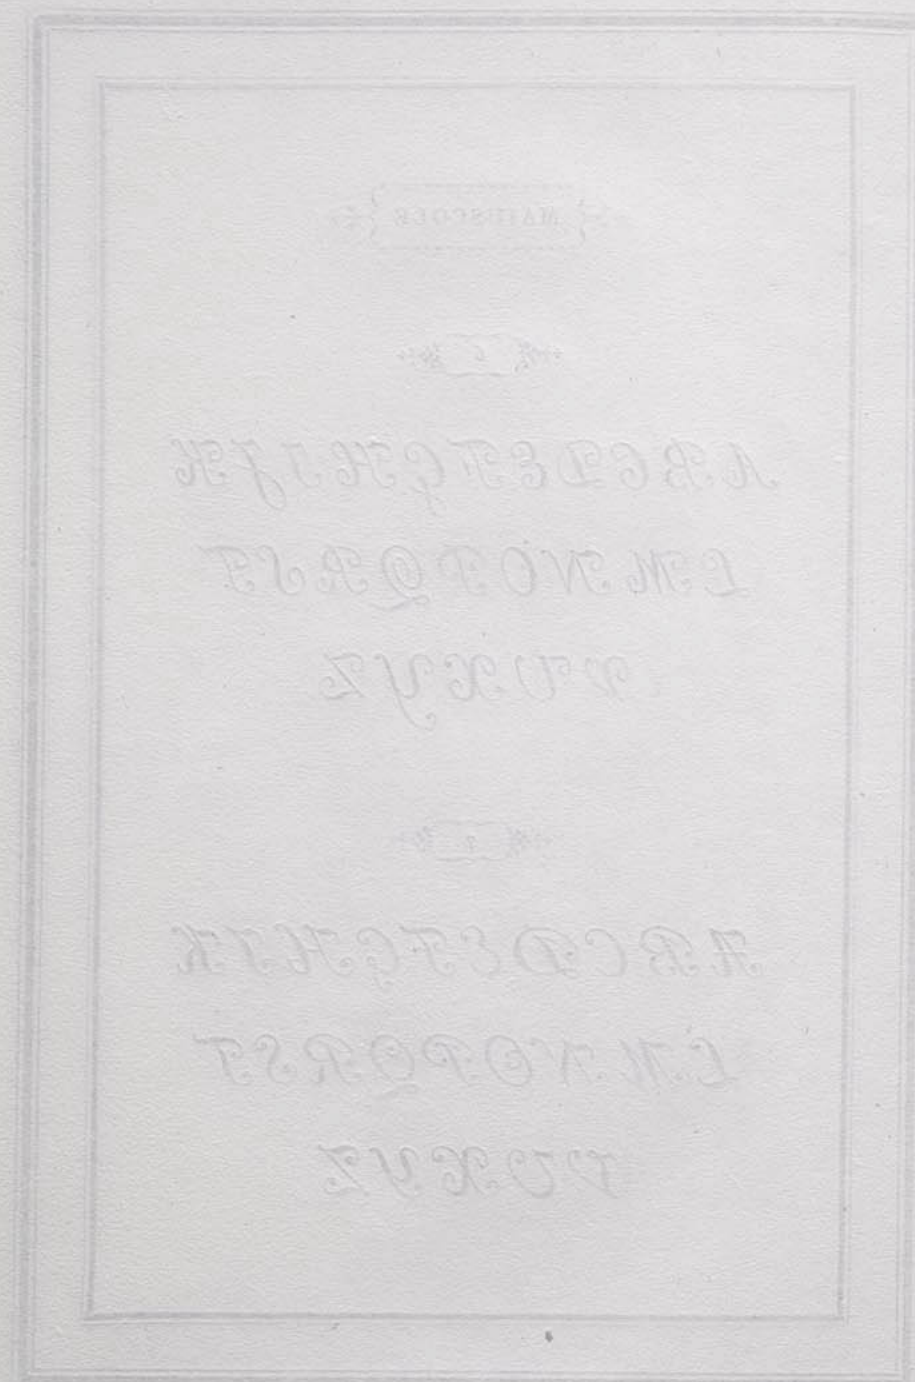 MAIUSCOLE
6
A B C D E F G H I J K
L M N O P Q R S T
V U X Y Z
7
A B C D E F G H I K
L M N O P Q R S T
V U X Y Z